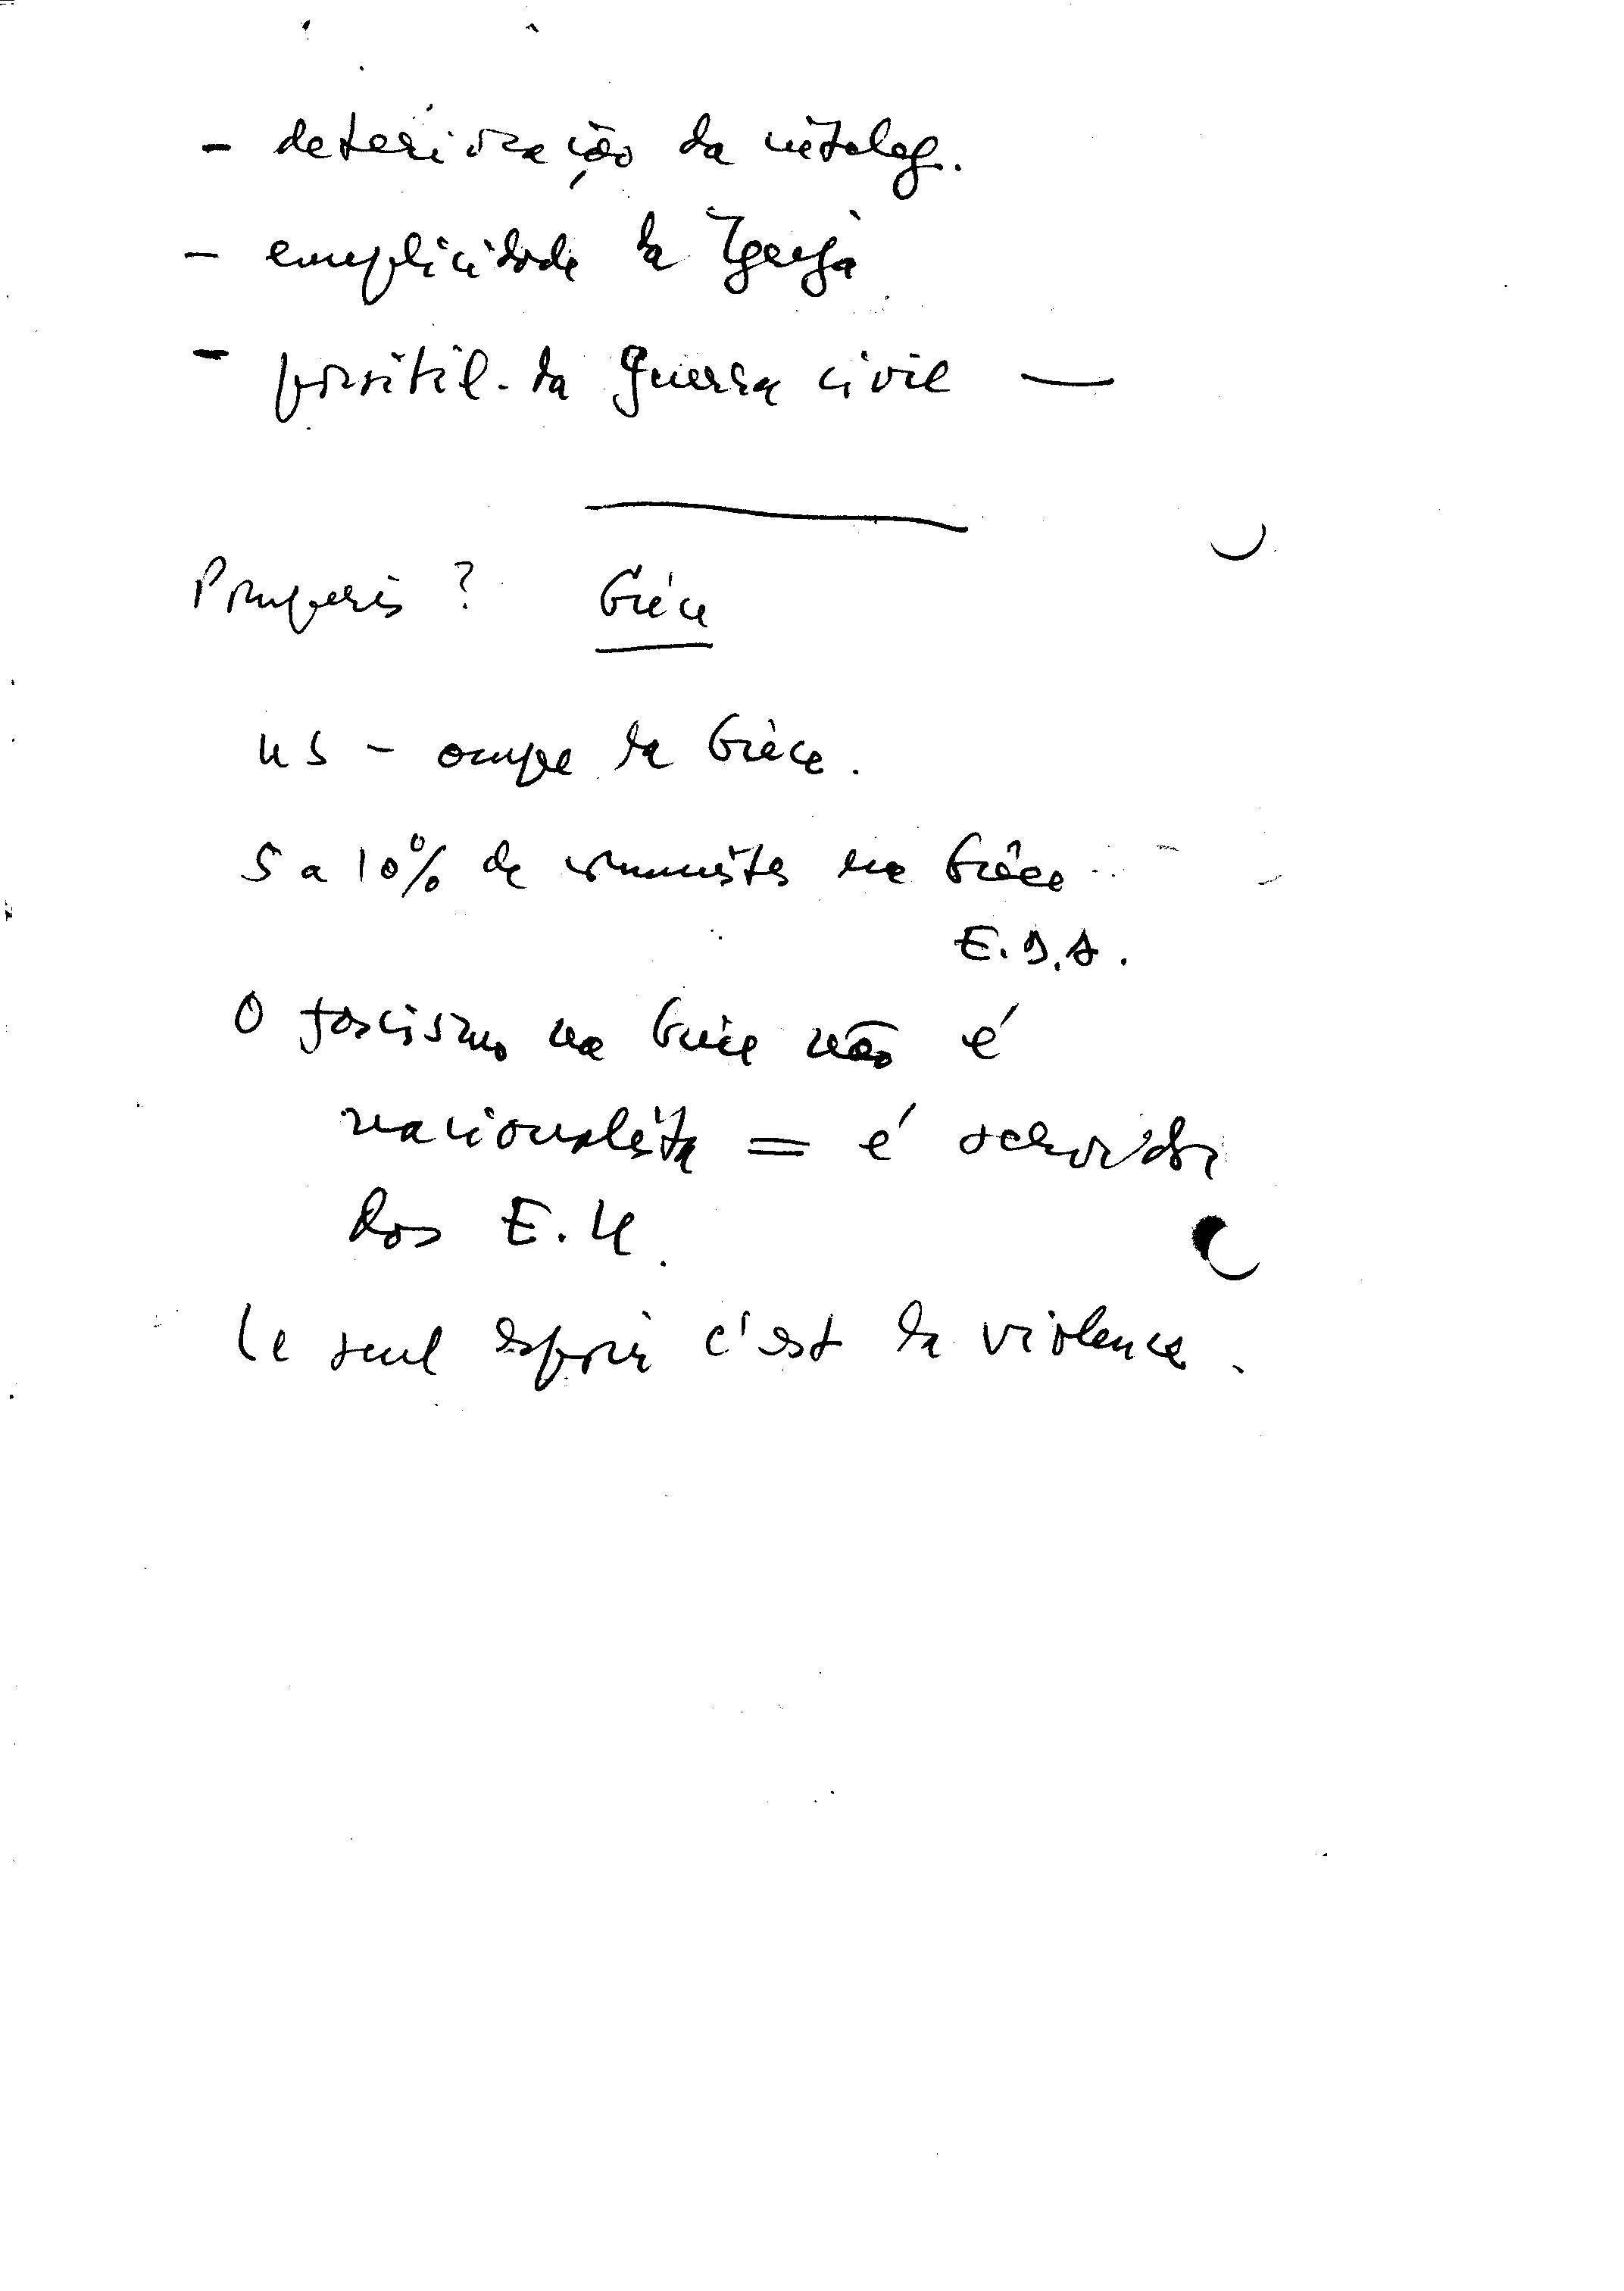 - deterioração da
- cumplicidade da Igreja
- possibil. da guerra civil —
? Grèce
US - occupe la Grèce.
5 a 10% de comunistas na Grèce
E.D.A.
O fascismo na Grèce não é
nacionalista = é
dos E.U.
le seul espoir c'est la violence.